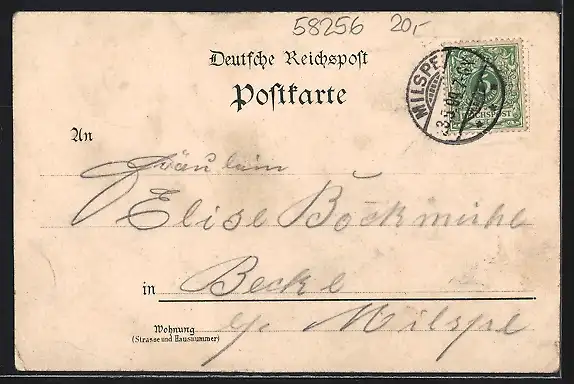 58256 20,-
Deutsche Reichspost
Postkarte
MILSPE
3.5.00
5
REICHSPOST
An
Fräulein
Elise Böckmühl
in Becke
b/ Milspe
Wohnung
(Strasse und Hausnummer)